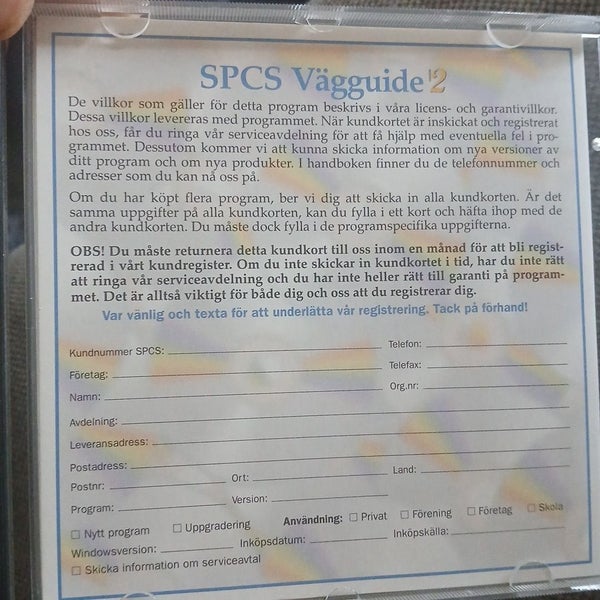 SPCS Vägguide 12
De villkor som gäller för detta program beskrivs i våra licens- och garantivillkor.
Dessa villkor levereras med programmet. När kundkortet är inskickat och registrerat
hos oss, får du ringa vår serviceavdelning för att få hjälp med eventuella fel i pro-
grammet. Dessutom kommer vi att kunna skicka information om nya versioner av
ditt program och om nya produkter. I handboken finner du de telefonnummer och
adresser som du kan nå oss på.
Om du har köpt flera program, ber vi dig att skicka in alla kundkorten. Är det
samma uppgifter på alla kundkorten, kan du fylla i ett kort och häfta ihop med de
andra kundkorten. Du måste dock fylla i de programspecifika uppgifterna.
OBS! Du måste returnera detta kundkort till oss inom en månad för att bli regist-
rerad i vårt kundregister. Om du inte skickar in kundkortet i tid, har du inte rätt
att ringa vår serviceavdelning och du har inte heller rätt till garanti på program-
met. Det är alltså viktigt för både dig och oss att du registrerar dig.
Var vänlig och texta för att underlätta vår registrering. Tack på förhand!
Kundnummer SPCS: Telefon:
Företag: Telefax:
Namn: Org.nr:
Avdelning:
Leveransadress:
Postadress:
Postnr: Ort: Land:
Program: Version:
Nytt program Uppgradering Användning: Privat Förening Företag Skola
Windowsversion: Inköpsdatum: Inköpskälla:
Skicka information om serviceavtal